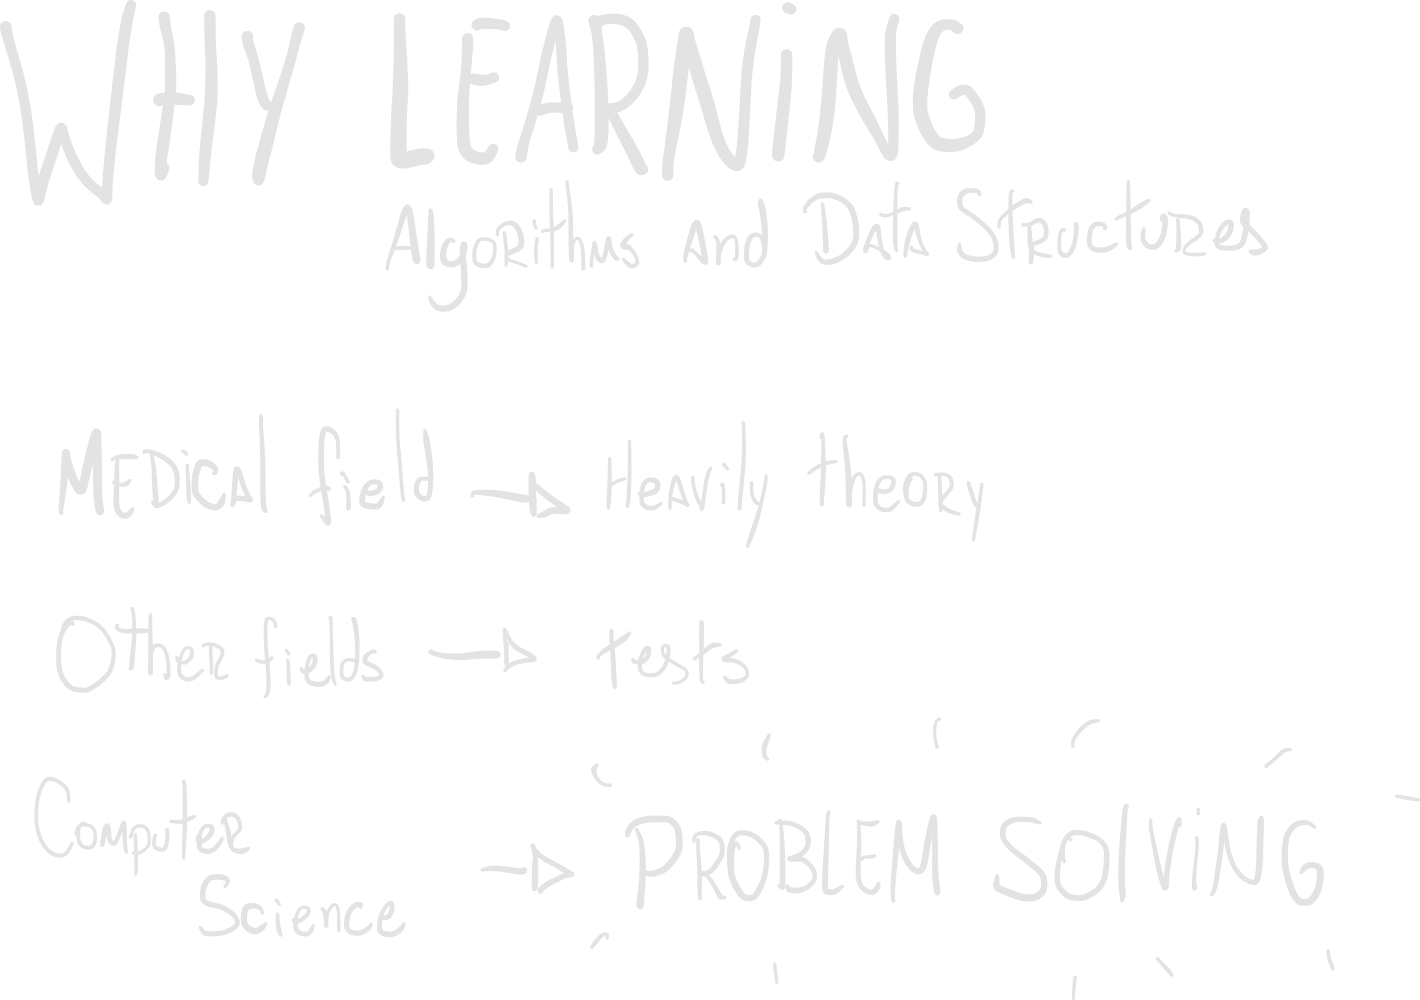 WHY LEARNING
Algorithms and Data Structures
Medical field → Heavily theory
Other fields → tests
Computer
Science → PROBLEM SOLVING